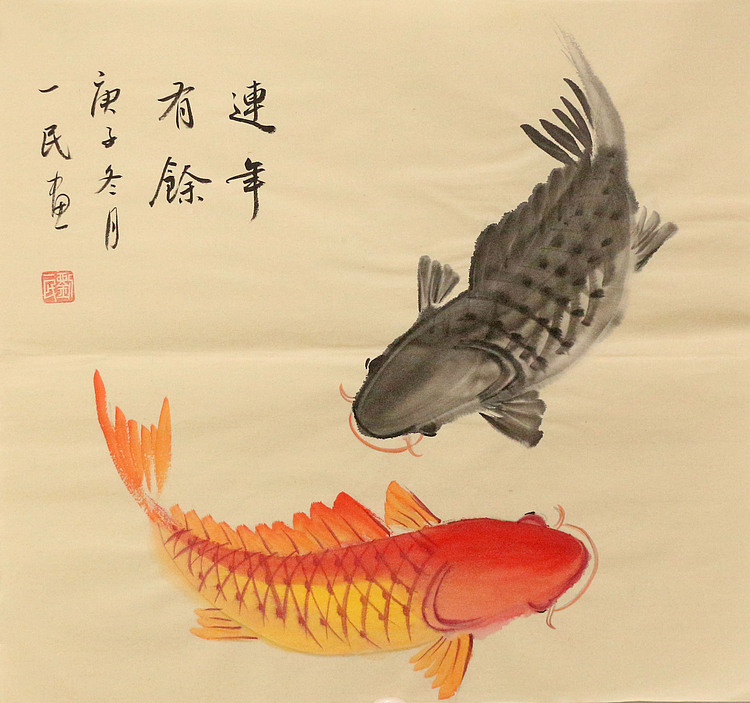 連年
有餘
庚子冬月
一民画
劉一民